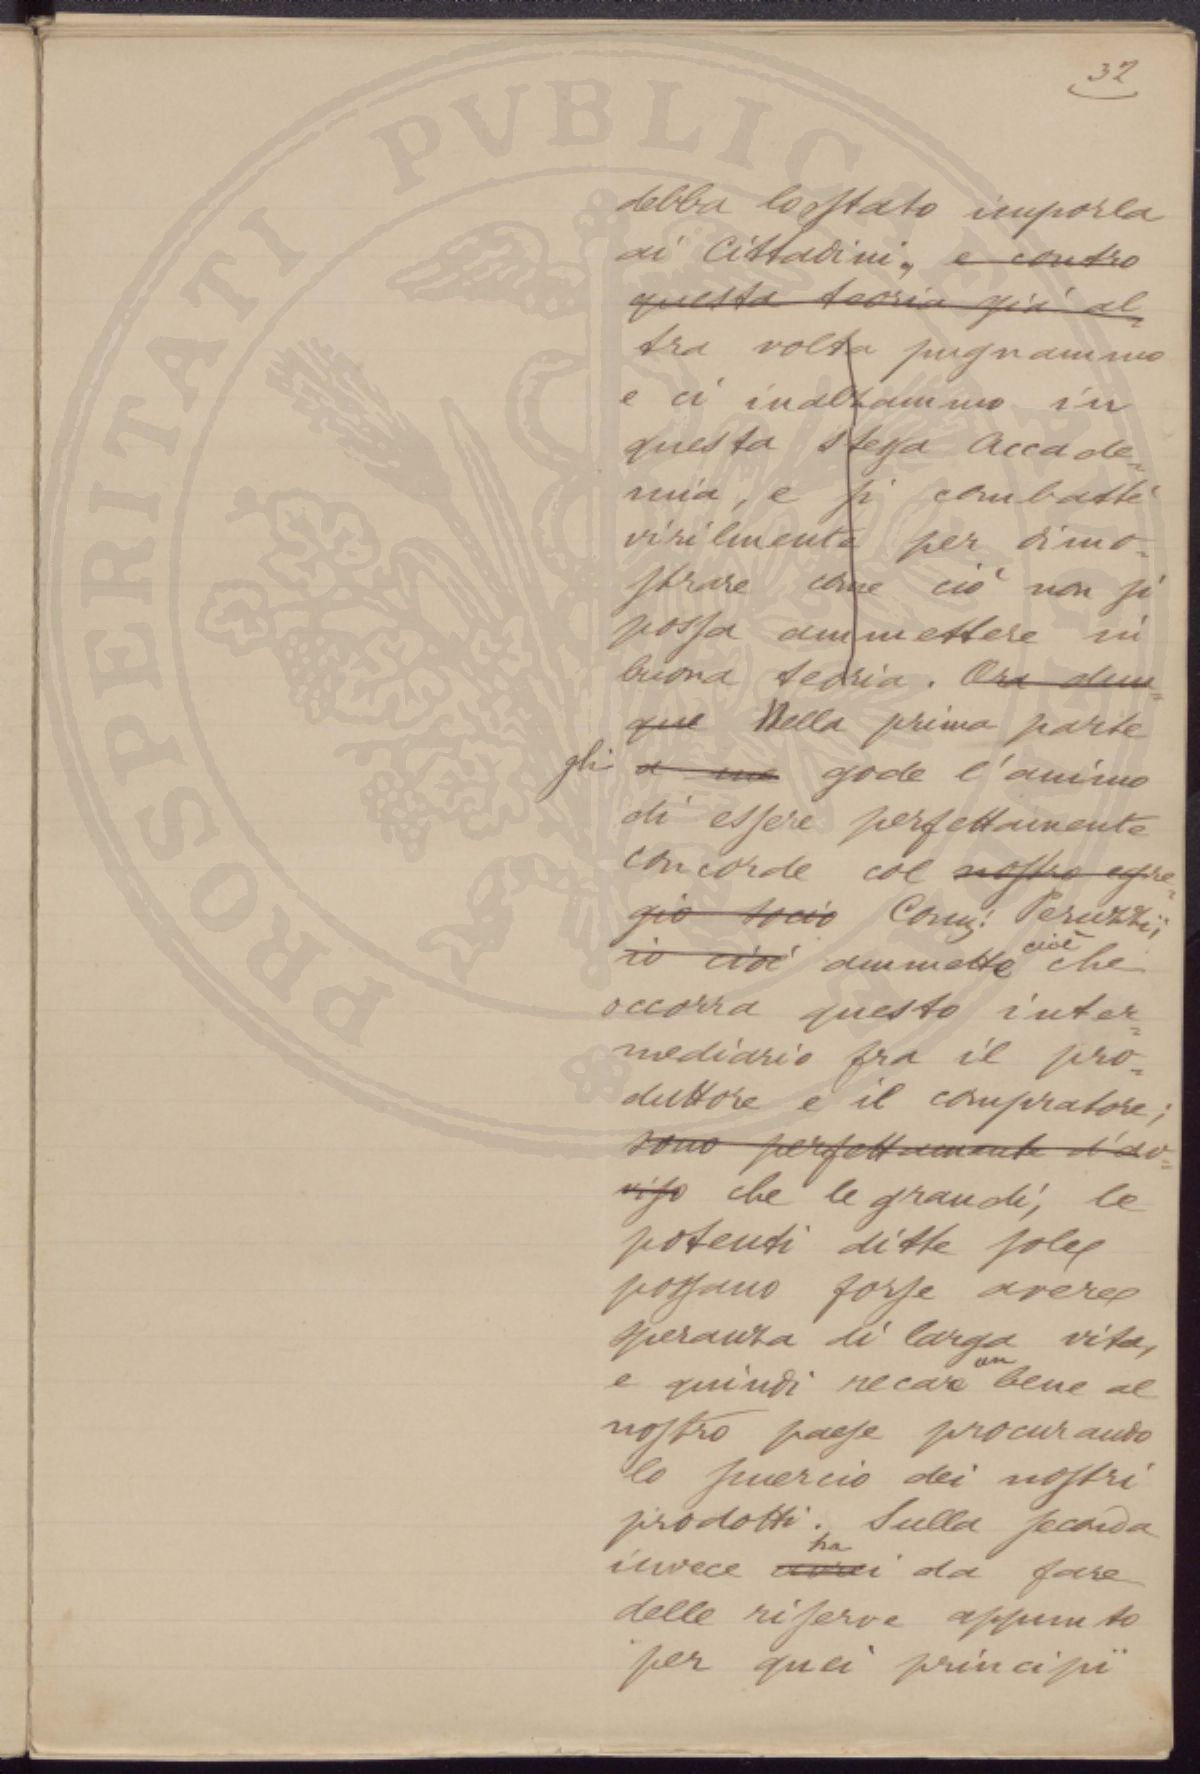 32
debba lo stato imporla
ai Cittadini, e contro
questa teoria già al-
tra volta pugnammo
e ci inalzammo in
questa stessa Accade-
mia, e si combatté
virilmente per dimo-
strare come ciò non si
possa ammettere in
buona teoria. Ora dun-
que Nella prima parte
gli a me gode l'animo
di essere perfettamente
concorde col nostro egre-
gio socio Peruzzi;
io cioè ammette cioè che
occorra questo inter-
mediario fra il pro-
duttore e il compratore;
sono perfettamente d'av-
viso che le grandi, le
potenti ditte sole
possano forse avere
speranza di larga vita,
e quindi recare un bene al
nostro paese procurando
lo smercio dei nostri
prodotti. Sulla seconda
invece avrei ha da fare
delle riserve appunto
per quei principii
PROSPERITATI PVBLICAE